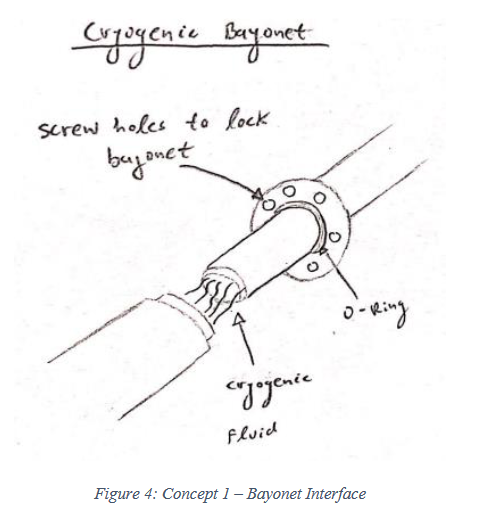 Cryogenic Bayonet
screw holes to lock
bayonet
O-Ring
cryogenic
Fluid
Figure 4: Concept 1 – Bayonet Interface